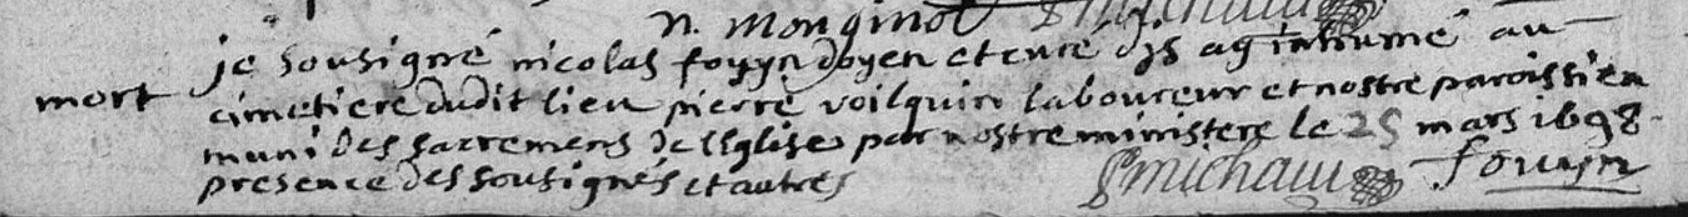 n. monginot Michau
je sousigné nicolas foyyn doyen et curé ay inhumé au
mort
cimetiere dudit lieu pierre voilquin laboureur et nostre paroissien
muni des sacremens de l'Eglise par nostre ministere le 25 mars 1698
presence des sousignés et autres Michau fouyn